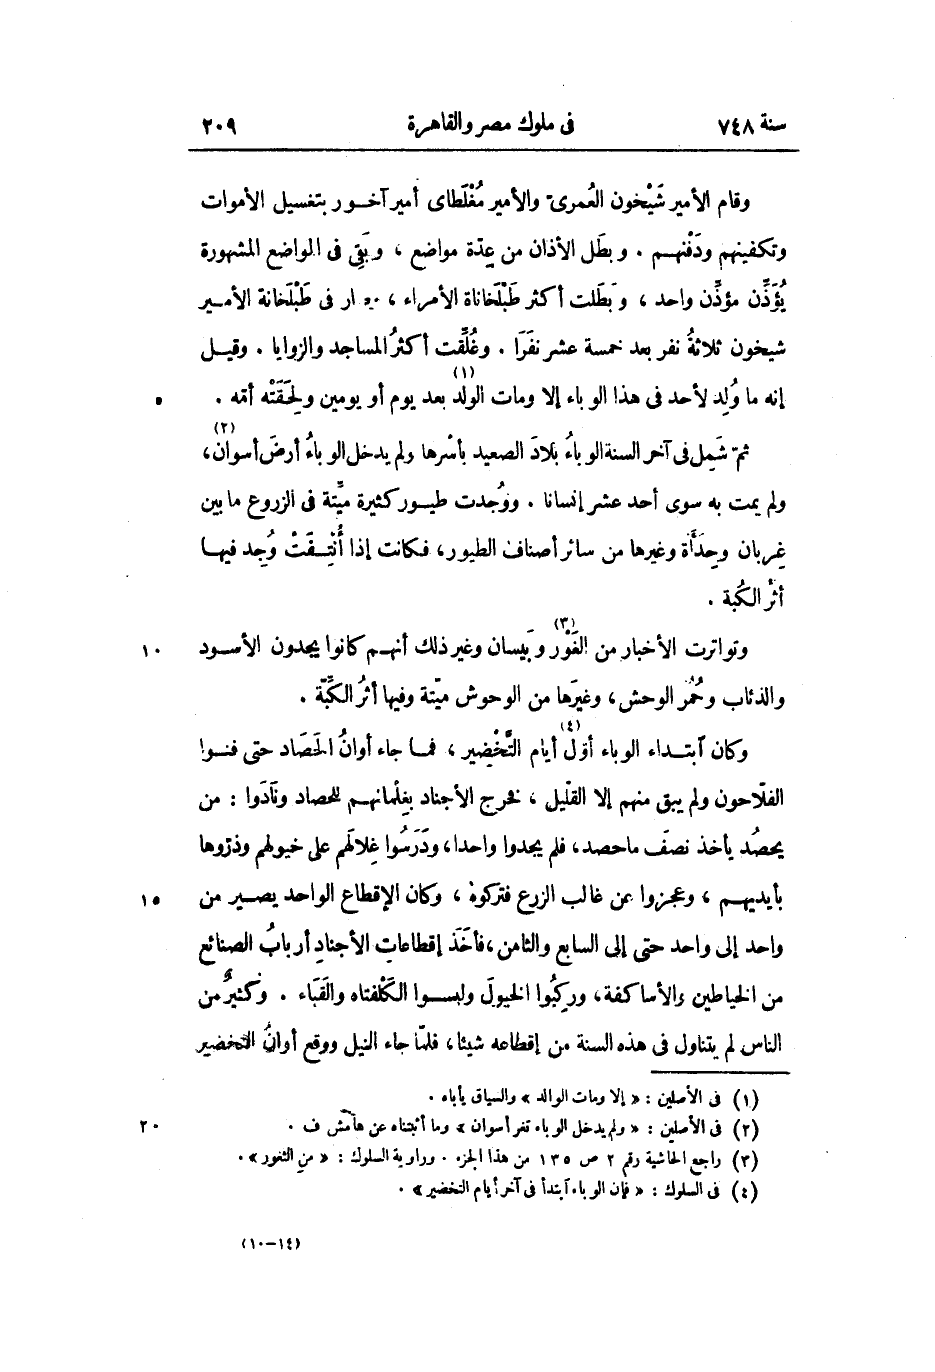 سنة ٧٤٨ فى ملوك مصر والقاهرة ٢٠٩
وقام الأمير شَيْخون العُمرىّ والأمير مُغْلَطاى أمير آخور بتغسيل الأموات
وتكفينهم ودَفْنهم . وبطَل الأذان من عِدّة مواضع ، وبَقِى فى المواضع المشهورة
يُؤَذِّن مؤذِّن واحد ، وبَطَلت أكثر طَبْلَخاناة الأمراء ، وصار فى طَبْلَخانة الأمير
شيخون ثلاثةُ نفر بعد خمسة عشر نفَرًا . وغُلِّقت أكثرُ المساجد والزوايا . وقيل
إنه ما وُلِد لأحد فى هذا الوباء إلا ومات الولد (١) بعد يوم أو يومين ولحَقَتْه أمّه . ٥
ثمّ شَمِل فى آخر السنة الوباءُ بلادَ الصعيد بأسْرها ولم يدخل الوباءُ أرضَ أسوان (٢)،
ولم يمت به سوى أحد عشر إنسانا . ووُجدت طيور كثيرة ميِّتة فى الزروع ما بين
غِربان وحِدَأَة وغيرها من سائر أصناف الطيور، فكانت إذا أُنْتِفَتْ وُجِد فيها
أثرُ الكُبة .
وتواترت الأخبار من الغَوْر (٣) وبَيسان وغير ذلك أنهم كانوا يجدون الأسود ١٠
والذئاب وحُمُر الوحش، وغيرَها من الوحوش ميّتة وفيها أثرُ الكُبّة .
وكان آبتداء الوباء أوّلَ (٤) أيام التَّخْضير ، فما جاء أوانُ الحَصَاد حتى فنوا
الفلّاحون ولم يبق منهم إلا القليل ، فخرج الأجناد بغِلْمانهم للحصاد ونَادَوا : من
يحصُد يأخذ نصفَ ماحصد، فلم يجدوا واحدا، ودَرَسُوا غلالَهم على خيولهم وذرّوها
بأيديهم ، وعجزوا عن غالب الزرع فتركوه ، وكان الإقطاع الواحد يصير من ١٥
واحد إلى واحد حتى إلى السابع والثامن ، فأخَذ إقطاعاتِ الأجنادِ أربابُ الصنائع
من الخياطين والأساكفة، وركِبُوا الخيولَ ولبسوا الكَلَفتاه والقَبَاء . وكثيرٌ من
الناس لم يتناول فى هذه السنة من إقطاعه شيئا، فلمّا جاء النيل ووقع أوانُ التخضير
(١) فى الأصلين : « إلا ومات الوالد » والسياق يأباه .
(٢) فى الأصلين : « ولم يدخل الوباء ثغر أسوان » وما أثبتناه عن هامش ف . ٢٠
(٣) راجع الحاشية رقم ٢ ص ١٣٥ من هذا الجزء . ورواية السلوك : « من الثغور » .
(٤) فى السلوك : « فإن الوباء آبتدأ فى آخر أيام التخضير » .
(١٤-١٠)